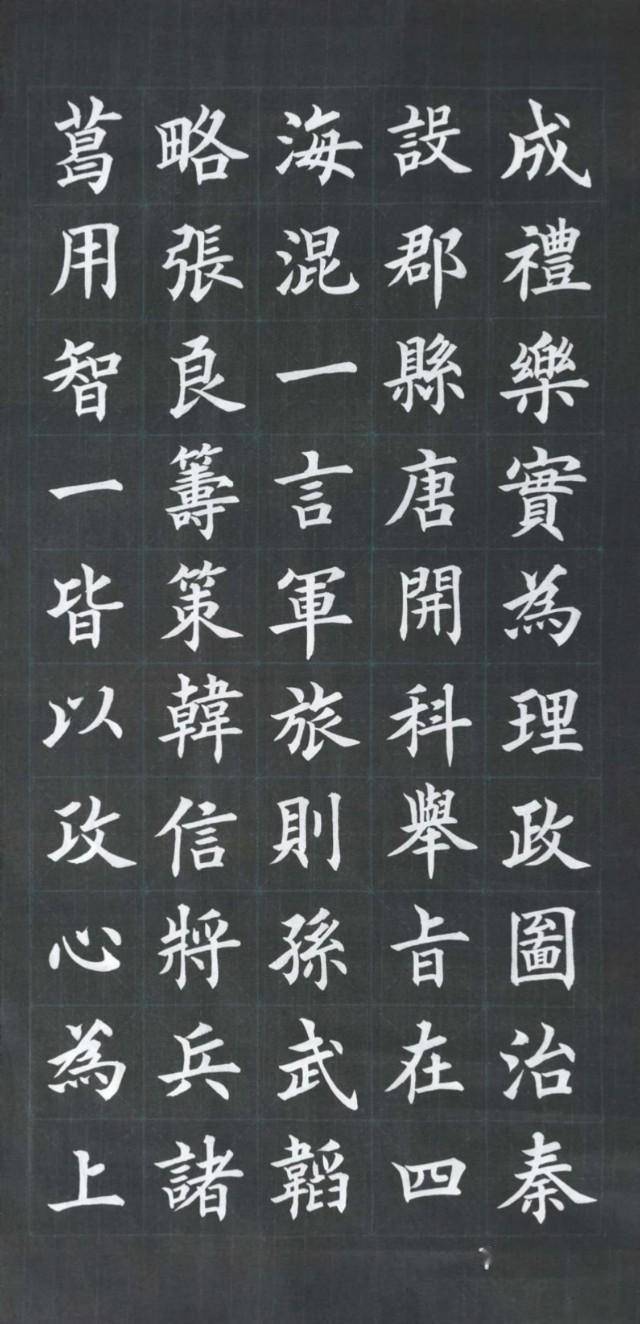 成禮樂實為理政圖治秦
設郡縣唐開科舉旨在四
海混一言軍旅則孫武韜
略張良籌策韓信將兵諸
葛用智一皆以攻心為上